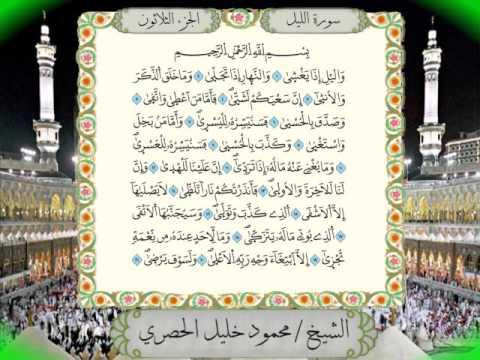 سورة الليل
الجزء الثلاثون
بِسْمِ اللَّهِ الرَّحْمَٰنِ الرَّحِيمِ
وَالَّيْلِ إِذَا يَغْشَىٰ وَالنَّهَارِ إِذَا تَجَلَّىٰ وَمَا خَلَقَ الذَّكَرَ
وَالْأُنثَىٰ إِنَّ سَعْيَكُمْ لَشَتَّىٰ فَأَمَّا مَنْ أَعْطَىٰ وَاتَّقَىٰ
وَصَدَّقَ بِالْحُسْنَىٰ فَسَنُيَسِّرُهُ لِلْيُسْرَىٰ وَأَمَّا مَنْ بَخِلَ
وَاسْتَغْنَىٰ وَكَذَّبَ بِالْحُسْنَىٰ فَسَنُيَسِّرُهُ لِلْعُسْرَىٰ
وَمَا يُغْنِي عَنْهُ مَالُهُ إِذَا تَرَدَّىٰ إِنَّ عَلَيْنَا لَلْهُدَىٰ وَإِنَّ
لَنَا لَلْآخِرَةَ وَالْأُولَىٰ فَأَنذَرْتُكُمْ نَارًا تَلَظَّىٰ لَا يَصْلَاهَا
إِلَّا الْأَشْقَى الَّذِي كَذَّبَ وَتَوَلَّىٰ وَسَيُجَنَّبُهَا الْأَتْقَى
الَّذِي يُؤْتِي مَالَهُ يَتَزَكَّىٰ وَمَا لِأَحَدٍ عِندَهُ مِن نِّعْمَةٍ
تُجْزَىٰ إِلَّا ابْتِغَاءَ وَجْهِ رَبِّهِ الْأَعْلَىٰ وَلَسَوْفَ يَرْضَىٰ
الشيخ / محمود خليل الحصري